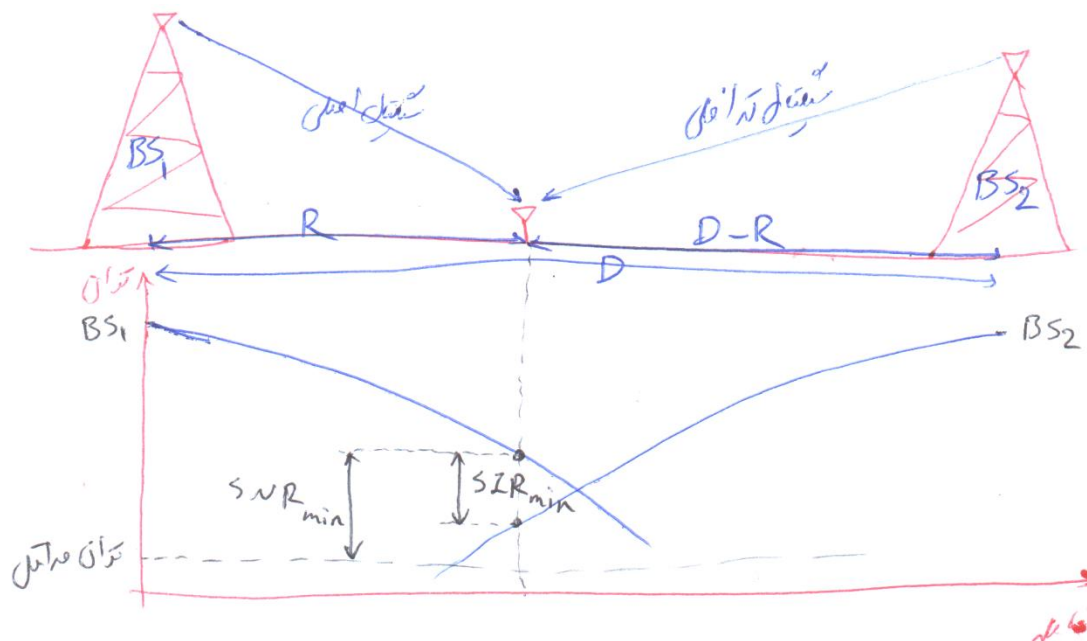 سیگنال اصلی
سیگنال تداخلی
BS1
BS2
R
D-R
D
توان
BS1
BS2
SNRmin
SIRmin
توان حداقل